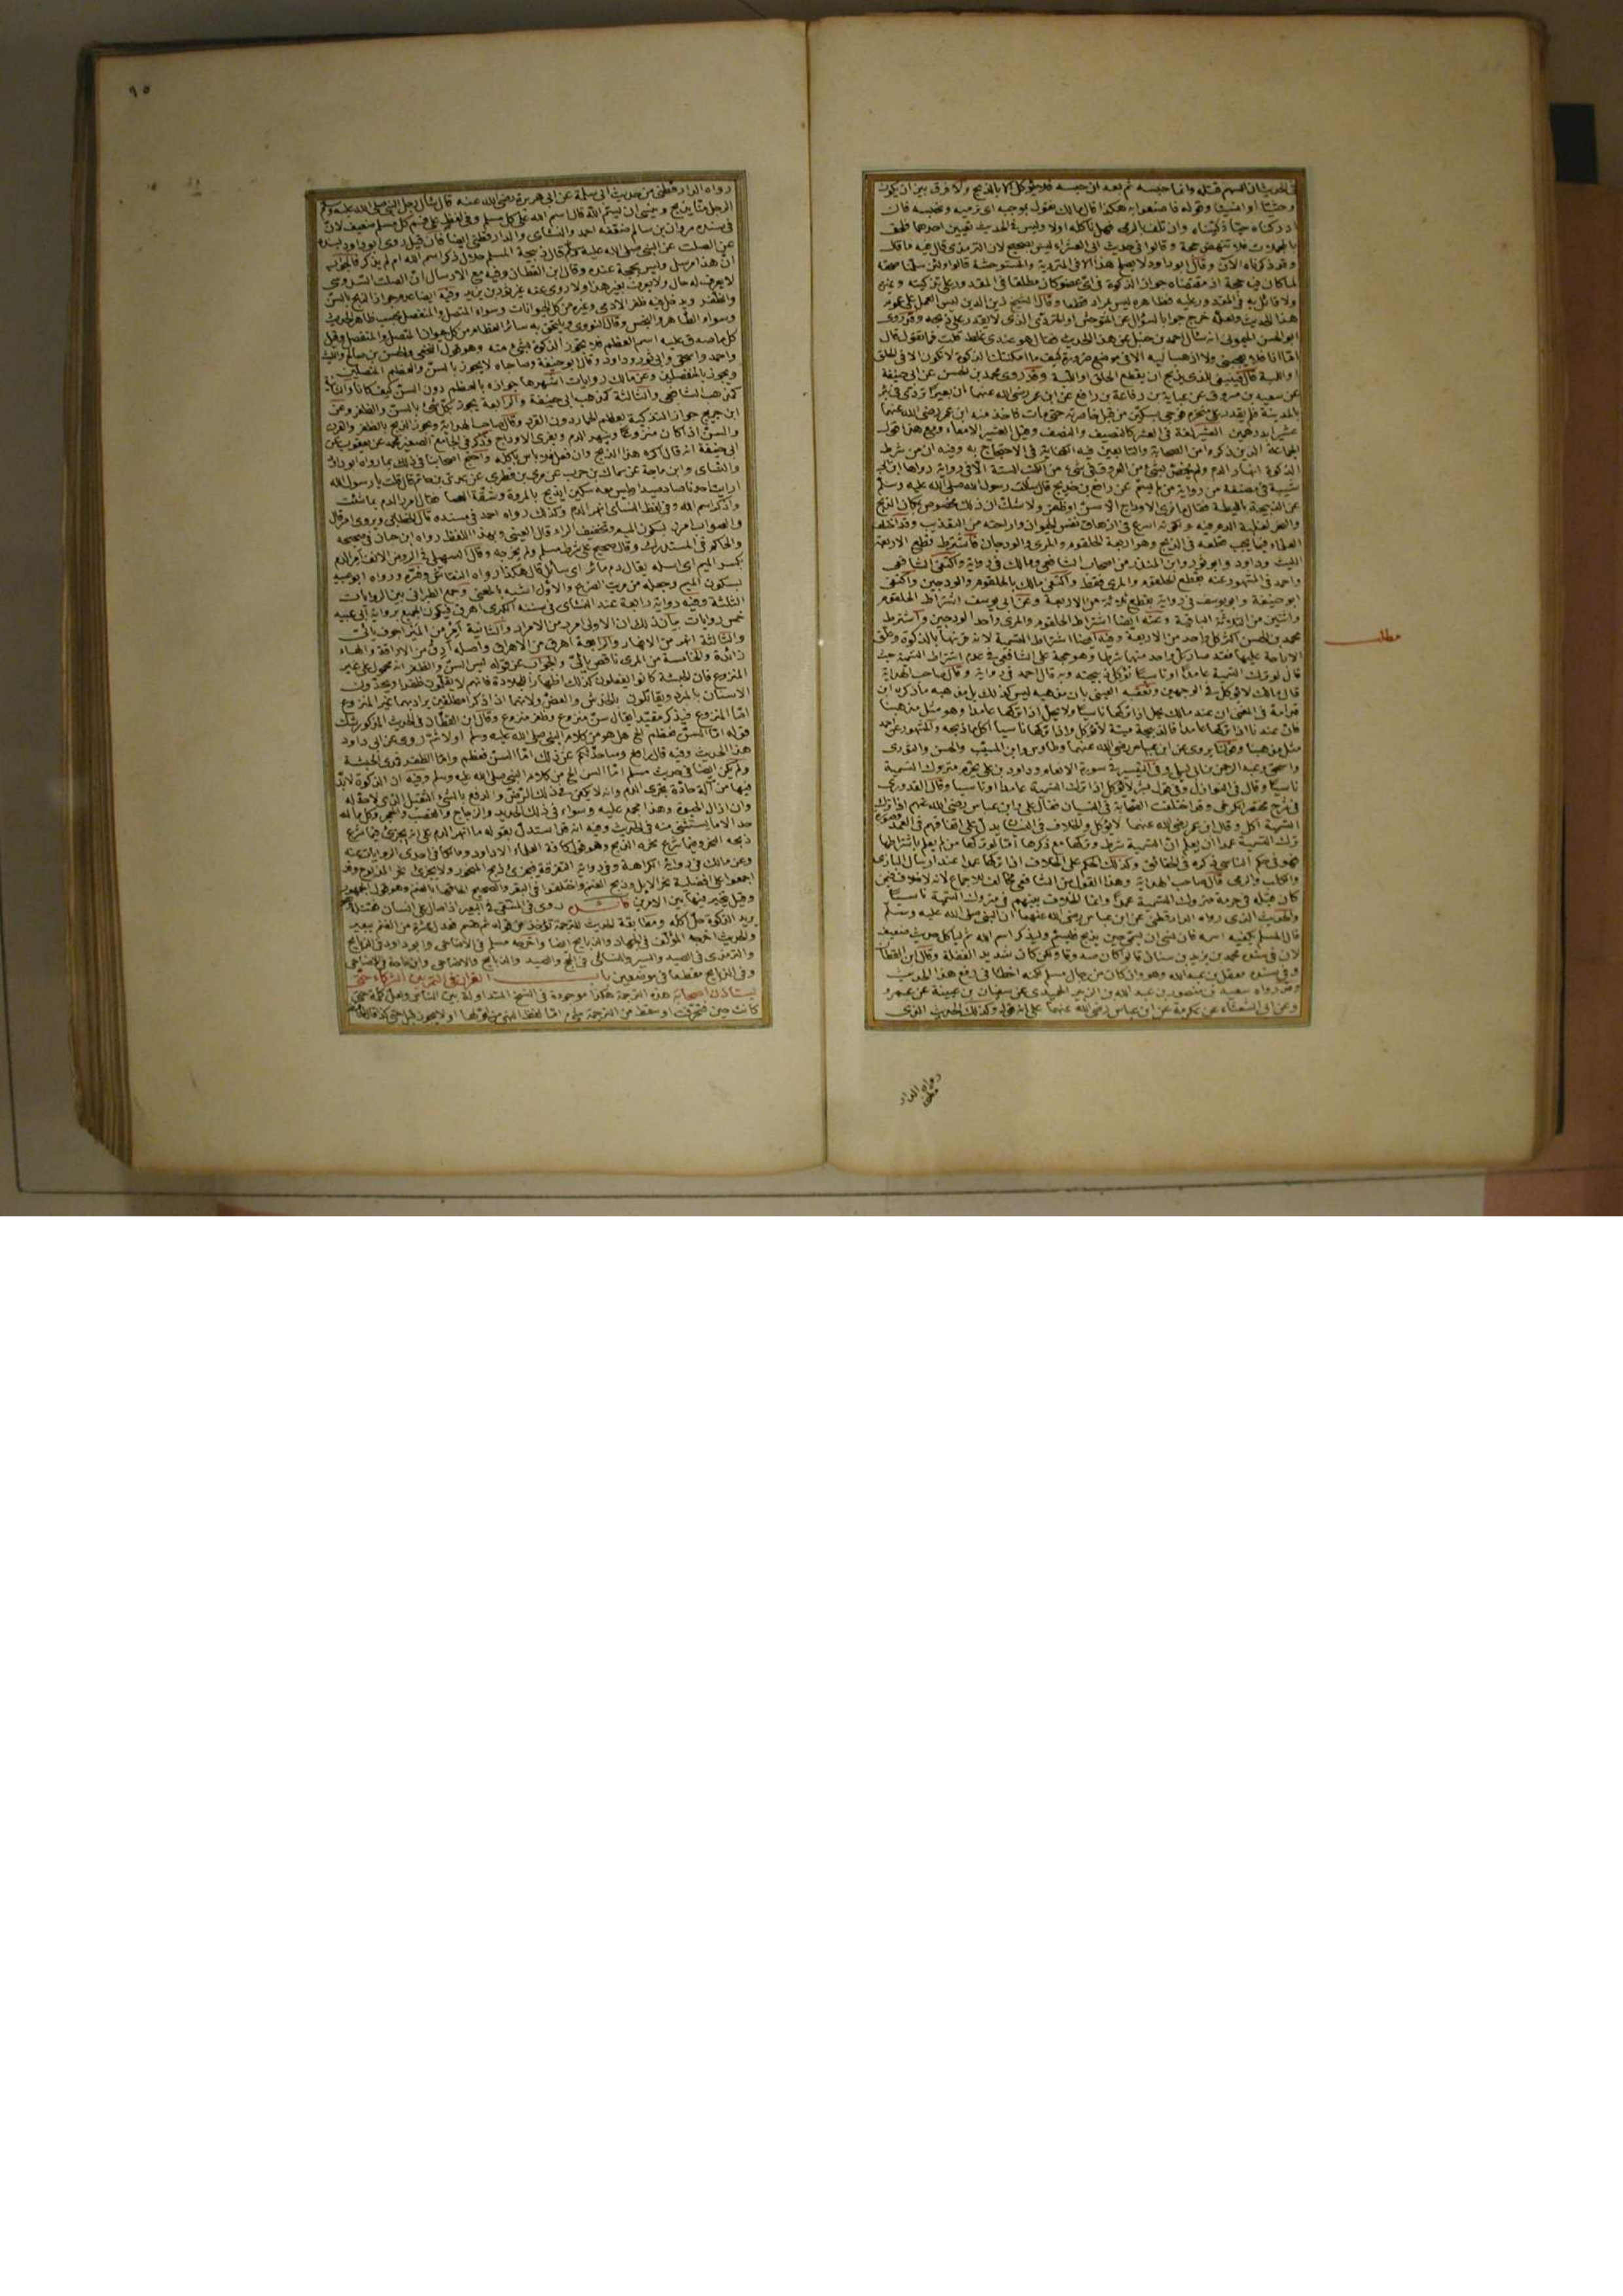 في الحديث ان السهم قتله وانما حبسه ثم بعد ان حبسه فلا يؤكل الا بالذبح ولا فرق بين ان يكون
وحشيا او انسيا وقوله فاصنعوا به هكذا قال مالك نقول بموجبه اي نرميه ونحبسه فان
ادركناه حيا ذكيناه وان تلف بالرمي فهل نأكله او لا وليس في الحديث تعيين احدهما فلحق
بالمجملات فلا تنهض حجة وقالوا في حديث ابي العشراء ليس بصحيح لان الترمذي قال فيه ما قال
وقد ذكرناه الآن وقال ابو داود لا يصلح هذا الا في المتردية والمستوحشة قالوا ولئن سلمنا صحته
لما كان فيه حجة اذ مقتضاه جواز الذكوة في اي عضو كان مطلقا في المقدور على تذكيته وغيره
ولا قائل به في المقدور عليه فظاهره ليس بمراد قطعا وقال الشيخ زين الدين ليس العمل على عموم
هذا الحديث ولعله خرج جوابا لسؤال عن المتوحش او المتردي الذي لا يقدر على ذبحه وقد روى
ابو الحسن الميموني انه سأل احمد بن حنبل عن هذا الحديث فقال هو عندي غلط قلت فما تقول قال
اما انا فلا يعجبني ولا اذهب اليه الا في موضع ضرورة كيف ما امكنتك الذكوة لا تكون الا في الحلق
او اللبة قال فينبغي للذي يذبح ان يقطع الحلق او اللبة وقد روى محمد بن الحسن عن ابي حنيفة
عن سعيد بن مسروق عن عباية بن رفاعة بن رافع عن ابن عمر رضي الله عنهما ان بعيرا تردى في بئر
بالمدينة فلم يقدر على منحره فوجئ بسكين من قبل خاصرته حتى مات فاخذ منه ابن عمر رضي الله عنهما
عشيرا بدرهمين العشير لغة في العشر كالنصيف والنصف وقيل العشير الامعاء ومع هذا قول
الجماعة الذين ذكروا من الصحابة والتابعين فيه الكفاية في الاحتجاج به وفيه ان من شرط
الذكوة انهار الدم ولم يخص بشيء من العروق في شيء من الكتب الستة الا في رواية رواها ابن ابي
شيبة في مصنفه من رواية من لم يسم عن رافع بن خديج قال سألت رسول الله صلى الله عليه وسلم
عن الذبيحة بالليطة فقال ما فرى الاوداج الا سن او ظفر ولا شك ان ذلك مخصوص بمكان الذبح
والنحر لغلبة الدم فيه ولكونه اسرع في ازهاق نفس الحيوان واراحته من التعذيب وقد اختلف
العلماء فيما يجب قطعه في الذبح وهو اربعة الحلقوم والمرى والودجان فاشترط قطع الاربعة
الليث وداود وابو ثور وابن المنذر من اصحاب الشافعي ومالك في رواية واكتفى الشافعي
واحمد في المشهور عنه بقطع الحلقوم والمرى فقط واكتفى مالك بالحلقوم والودجين واكتفى
ابو حنيفة وابو يوسف في رواية بقطع ثلاثة من الاربعة وعن ابي يوسف اشتراط الحلقوم
واثنين من الثلاثة الباقية وعنه ايضا اشتراط الحلقوم والمرى واحد الودجين واشترط
محمد بن الحسن اكثر كل واحد من الاربعة وفيه ايضا اشتراط التسمية لانه قرنها بالذكوة وعلق
الاباحة عليهما فقد صار كل واحد منهما شرطا وهو حجة على الشافعي في عدم اشتراط التسمية حيث
مطلب
قال لو ترك التسمية عامدا او ناسيا تؤكل ذبيحته وبه قال احمد في رواية وقال صاحب الهداية
قال مالك لا يؤكل في الوجهين وتعقبه العيني بان مذهبه ليس كذلك بل مذهبه ما ذكره ابن
قدامة في المغني ان عند مالك يحل اذا تركها ناسيا ولا يحل اذا تركها عامدا وهو مثل مذهبنا
فان عندنا اذا تركها عامدا فالذبيحة ميتة لا تؤكل واذا تركها ناسيا اكل ما ذبحه والمشهور عن احمد
مثل مذهبنا وقولنا يروى عن ابن عباس رضي الله عنهما وطاوس وابن المسيب والحسن والثوري
واسحق وعبد الرحمن بن ابي ليلى وفي التفسير في سورة الانعام وداود بن علي يحرم متروك التسمية
ناسيا وقال في النوازل وفي قول بشر لا يؤكل اذا ترك التسمية عامدا او ناسيا وقال القدوري
في شرح مختصر الكرخي وقد اختلفت الصحابة في النسيان فقال علي وابن عباس رضي الله عنهم اذا ترك
التسمية اكل وقال ابن عمر رضي الله عنهما لا يؤكل والخلاف في النسيان يدل على اتفاقهم في العمد وصورة
ترك التسمية عمدا ان يعلم ان التسمية شرط وتركها مع ذكرها اما لو تركها من لم يعلم باشتراطها
فهو في حكم الناسي ذكره في الحقائق وكذلك الحكم على الخلاف اذا تركها عمدا عند ارسال البازي
والكلب والرمي قال صاحب الهداية وهذا القول من الشافعي مخالف للاجماع لانه لا خلاف فيمن
كان قبله في حرمة متروك التسمية عمدا وانما الخلاف بينهم في متروك التسمية ناسيا
والحديث الذي رواه الدارقطني عن ابن عباس رضي الله عنهما ان النبي صلى الله عليه وسلم
قال المسلم يكفيه اسمه فان نسي ان يسمي حين يذبح فليسم وليذكر اسم الله ثم ليأكل حديث ضعيف
لان في سنده محمد بن يزيد بن سنان قالوا كان صدوقا ولكن كان شديد الغفلة وقال ابن القطان
وفي سنده معقل بن عبيد الله وهو وان كان من رجال مسلم لكنه اخطأ في رفع هذا الحديث
وقد رواه سعيد بن منصور وعبد الله بن الزبير الحميدي عن سفيان بن عيينة عن عمرو
وعن ابي الشعثاء عن عكرمة عن ابن عباس رضي الله عنهما على انه قوله وكذلك الحديث الذي
رواه الدار
قطني
٩٥
رواه الدارقطني من حديث ابي سلمة عن ابي هريرة رضي الله عنه قال سأل رجل النبي صلى الله عليه وسلم
الرجل منا يذبح وينسى ان يسمي الله قال اسم الله على كل مسلم وفي لفظ على فم كل مسلم ضعيف لان
في سنده مروان بن سالم ضعفه احمد والنسائي والدارقطني ايضا فان قيل روى ابو داود بسنده
عن الصلت عن النبي صلى الله عليه وسلم قال ذبيحة المسلم حلال ذكر اسم الله ام لم يذكر فالجواب
ان هذا مرسل وليس بحجة عنده وقال ابن القطان وفيه مع الارسال ان الصلت السدوسي
لا يعرف له حال ولا يعرف بغير هذا ولا روى عنه غير ثور بن يزيد وفيه ايضا عدم جواز الذبح بالسن
والظفر ويدخل فيه ظفر الآدمي وغيره من كل الحيوانات وسواء المتصل والمنفصل بحسب ظاهر الحديث
وسواء الطاهر والنجس وقال النووي ويلتحق به سائر العظام من كل حيوان المتصل والمنفصل وقيل
كل ما صدق عليه اسم العظم فلا يجوز الذكوة بشيء منه وهو قول النخعي والحسن بن صالح والليث
واحمد واسحق وابي ثور وداود وقال ابو حنيفة وصاحباه لا يجوز بالسن والعظم المتصلين
ويجوز بالمنفصلين وعن مالك روايات اشهرها جوازه بالعظم دون السن كيف كانا والثانية
كمذهب الشافعي والثالثة كمذهب ابي حنيفة والرابعة يجوز بكل شيء بالسن والظفر وعن
ابن جريج جواز التذكية بعظم الحمار دون القرد وقال صاحب الهداية ويجوز الذبح بالظفر والقرن
والسن اذا كان منزوعا وينهر الدم ويفري الاوداج وذكر في الجامع الصغير محمد عن يعقوب عن
ابي حنيفة انه قال اكره هذا الذبح وان فعل فلا بأس بأكله واحتج اصحابنا في ذلك بما رواه ابو داود
والنسائي وابن ماجة عن سماك بن حرب عن مري بن قطري عن عدي بن حاتم قال قلت يا رسول الله
ارايت احدنا صاد صيدا وليس معه سكين ايذبح بالمروة وشقة العصا فقال امرر الدم بما شئت
واذكر اسم الله وفي لفظ النسائي انهر الدم وكذلك رواه احمد في مسنده قال الخطابي ويروى امر قال
والصواب امر بسكون الميم وتخفيف الراء قال العيني وبهذا اللفظ رواه ابن حبان في صحيحه
والحاكم في المستدرك وقال صحيح على شرط مسلم ولم يخرجه وقال السهيلي في الروض الانف امر الدم
بكسر الميم اي اسله يقال دم مائر اي سائل قال هكذا رواه النقاش وفسره ورواه ابو عبيد
بسكون الميم وجعله من مريت الضرع والاول اشبه بالمعنى وجمع الطبراني بين الروايات
الثلثة وفيه رواية رابعة عند النسائي في سننه الكبرى اهرق فيكون الجميع برواية ابي عبيد
خمس روايات بيان ذلك ان الاولى امرر من الامرار والثانية امر من المير اجوف يائي
والثالثة انهر من الانهار والرابعة اهرق من الاهراق واصله ارق من الاراقة والهاء
زائدة والخامسة من المري ناقص يائي والجواب عن قوله ليس السن والظفر انه محمول على غير
المنزوع فان الحبشة كانوا يفعلون كذلك اظهارا للجلادة فانهم لا يقلمون ظفرا ويحدّدون
الاسنان بالمبرد ويقاتلون بالخدش والعض ولانهما اذا ذكرا مطلقين يراد بهما غير المنزوع
اما المنزوع فيذكر مقيدا يقال سن منزوع وظفر منزوع وقال ابن القطان في الحديث المذكور شك
في قوله اما السن فعظم الخ هل هو من كلام النبي صلى الله عليه وسلم او لا ثم روى عن ابي داود
هذا الحديث وفيه قال رافع وساحدثكم عن ذلك اما السن فعظم واما الظفر فمدى الحبشة
ولم يكن ايضا في حديث مسلم اما السن الخ من كلام النبي صلى الله عليه وسلم وفيه ان الذكوة لا بد
فيها من آلة حادة يجري الدم وانه لا يكفي في ذلك الرض والدفع بالشيء الثقيل الذي لا حد له
وان ازال الحيوة وهذا مجمع عليه وسواء في ذلك الحديد والزجاج والقصب والحجر وكل ما له
حد الا ما يستثنى منه في الحديث وفيه انه قد استدل بقوله ما انهر الدم على انه يجزئ فيما شرع
ذبحه النحر وفيما شرع نحره الذبح وهو قول كافة العلماء الا داود ومالكا في احدى الروايات عنه
وعن مالك في رواية الكراهة وفي رواية التفرقة فيجزئ ذبح المنحور ولا يجزئ نحر المذبوح وقد
اجمعوا على افضلية نحر الابل وذبح الغنم واختلفوا في البقر والصحيح الحاقها بالغنم وهو قول الجمهور
وقيل يتخير فيها بين الامرين روى في المنتقى في البعير اذا صال على انسان فقتله وهو
يريد الذكوة حل اكله ومطابقة الحديث للترجمة تؤخذ من قوله ثم قسم فعدل عشرة من الغنم ببعير
والحديث اخرجه المؤلف في الجهاد والذبايح ايضا واخرجه مسلم في الاضاحي وابو داود في الذبايح
والترمذي في الصيد والسير والنسائي في الحج والصيد والذبايح والاضاحي وابن ماجة في الاضاحي
وفي الذبايح مقطعا في موضعين باب القران في التمر بين الشركاء حتى
يستأذن اصحابه هذه الترجمة هكذا موجودة في النسخ المتداولة بين الناس ولعل كلمة حتى
كانت حين فتحرفت او سقط من الترجمة شيء اما لفظ النهي من اولها او لا يجوز قبل حتى كذا قال الحافظ